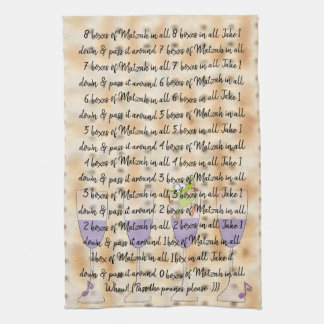 8 boxes of Matzah in all 8 boxes in all Take 1
down & pass it around 7 boxes of Matzah in all
7 boxes of Matzah in all 7 boxes in all Take 1
down & pass it around 6 boxes of Matzah in all
6 boxes of Matzah in all 6 boxes in all Take 1
down & pass it around 5 boxes of Matzah in all
5 boxes of Matzah in all 5 boxes in all Take 1
down & pass it around 4 boxes of Matzah in all
4 boxes of Matzah in all 4 boxes in all Take 1
down & pass it around 3 boxes of Matzah in all
3 boxes of Matzah in all 3 boxes in all Take 1
down & pass it around 2 boxes of Matzah in all
2 boxes of Matzah in all 2 boxes in all Take 1
down & pass it around 1 box of Matzah in all
1 box of Matzah in all 1 box in all Take it
down & pass it around 0 boxes of Matzah in all
Whew!! (Pass the prunes please :))